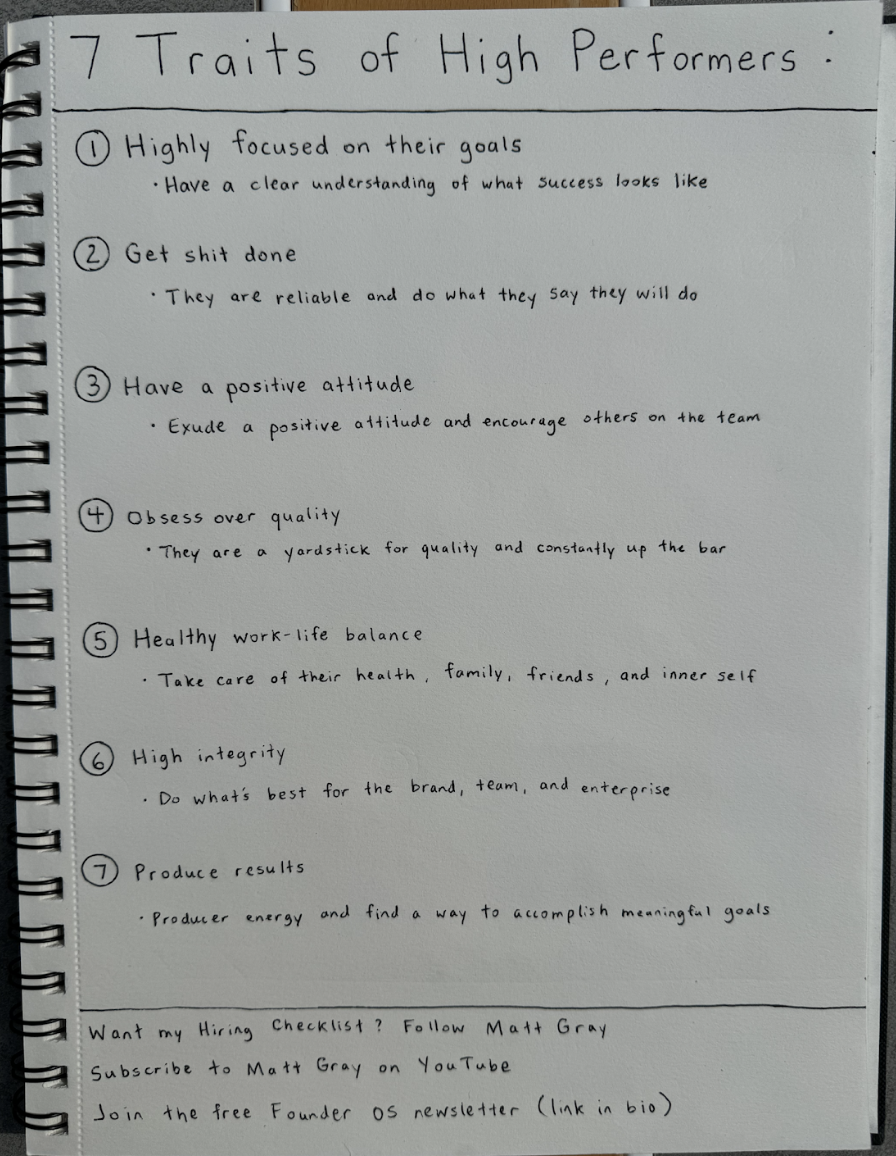 7 Traits of High Performers :
① Highly focused on their goals
· Have a clear understanding of what success looks like
② Get shit done
· They are reliable and do what they say they will do
③ Have a positive attitude
· Exude a positive attitude and encourage others on the team
④ Obsess over quality
· They are a yardstick for quality and constantly up the bar
⑤ Healthy work-life balance
· Take care of their health, family, friends, and inner self
⑥ High integrity
· Do what's best for the brand, team, and enterprise
⑦ Produce results
· Producer energy and find a way to accomplish meaningful goals
Want my Hiring Checklist? Follow Matt Gray
Subscribe to Matt Gray on YouTube
Join the free Founder OS newsletter (link in bio)